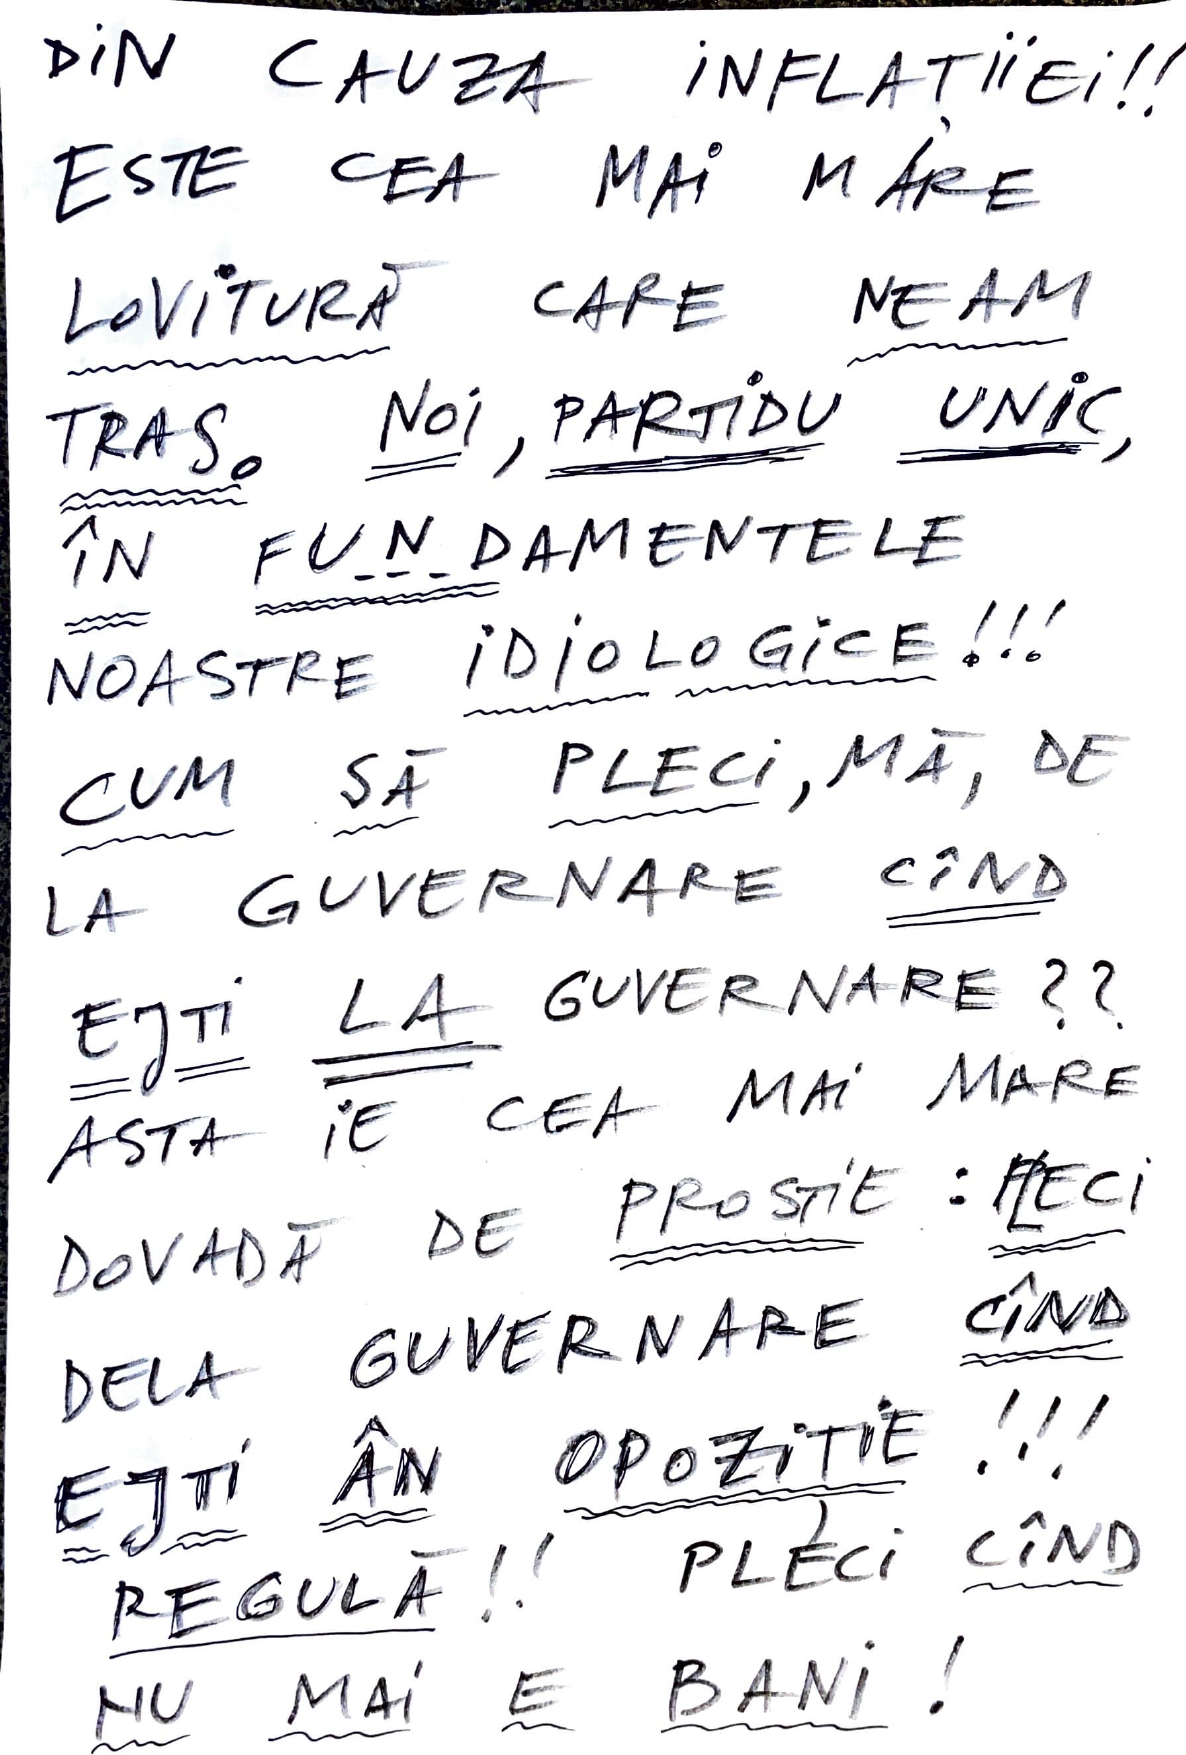 DiN CAUZA iNFLAȚiiEi!!
ESTE CEA MAi MARE
LOViTURĂ CARE NEAM
TRAS. NOi, PARTiDU UNiC,
ÎN FUNDAMENTELE
NOASTRE iDiOLOGiCE!!!
CUM SĂ PLECi, MĂ, DE
LA GUVERNARE CÎND
EJTi LA GUVERNARE??
ASTA iE CEA MAi MARE
DOVADĂ DE PROSTiE: PLECi
DELA GUVERNARE CÎND
EJTi ÂN OPOZiȚiE!!!
REGULĂ!! PLECi CÎND
NU MAi E BANi!